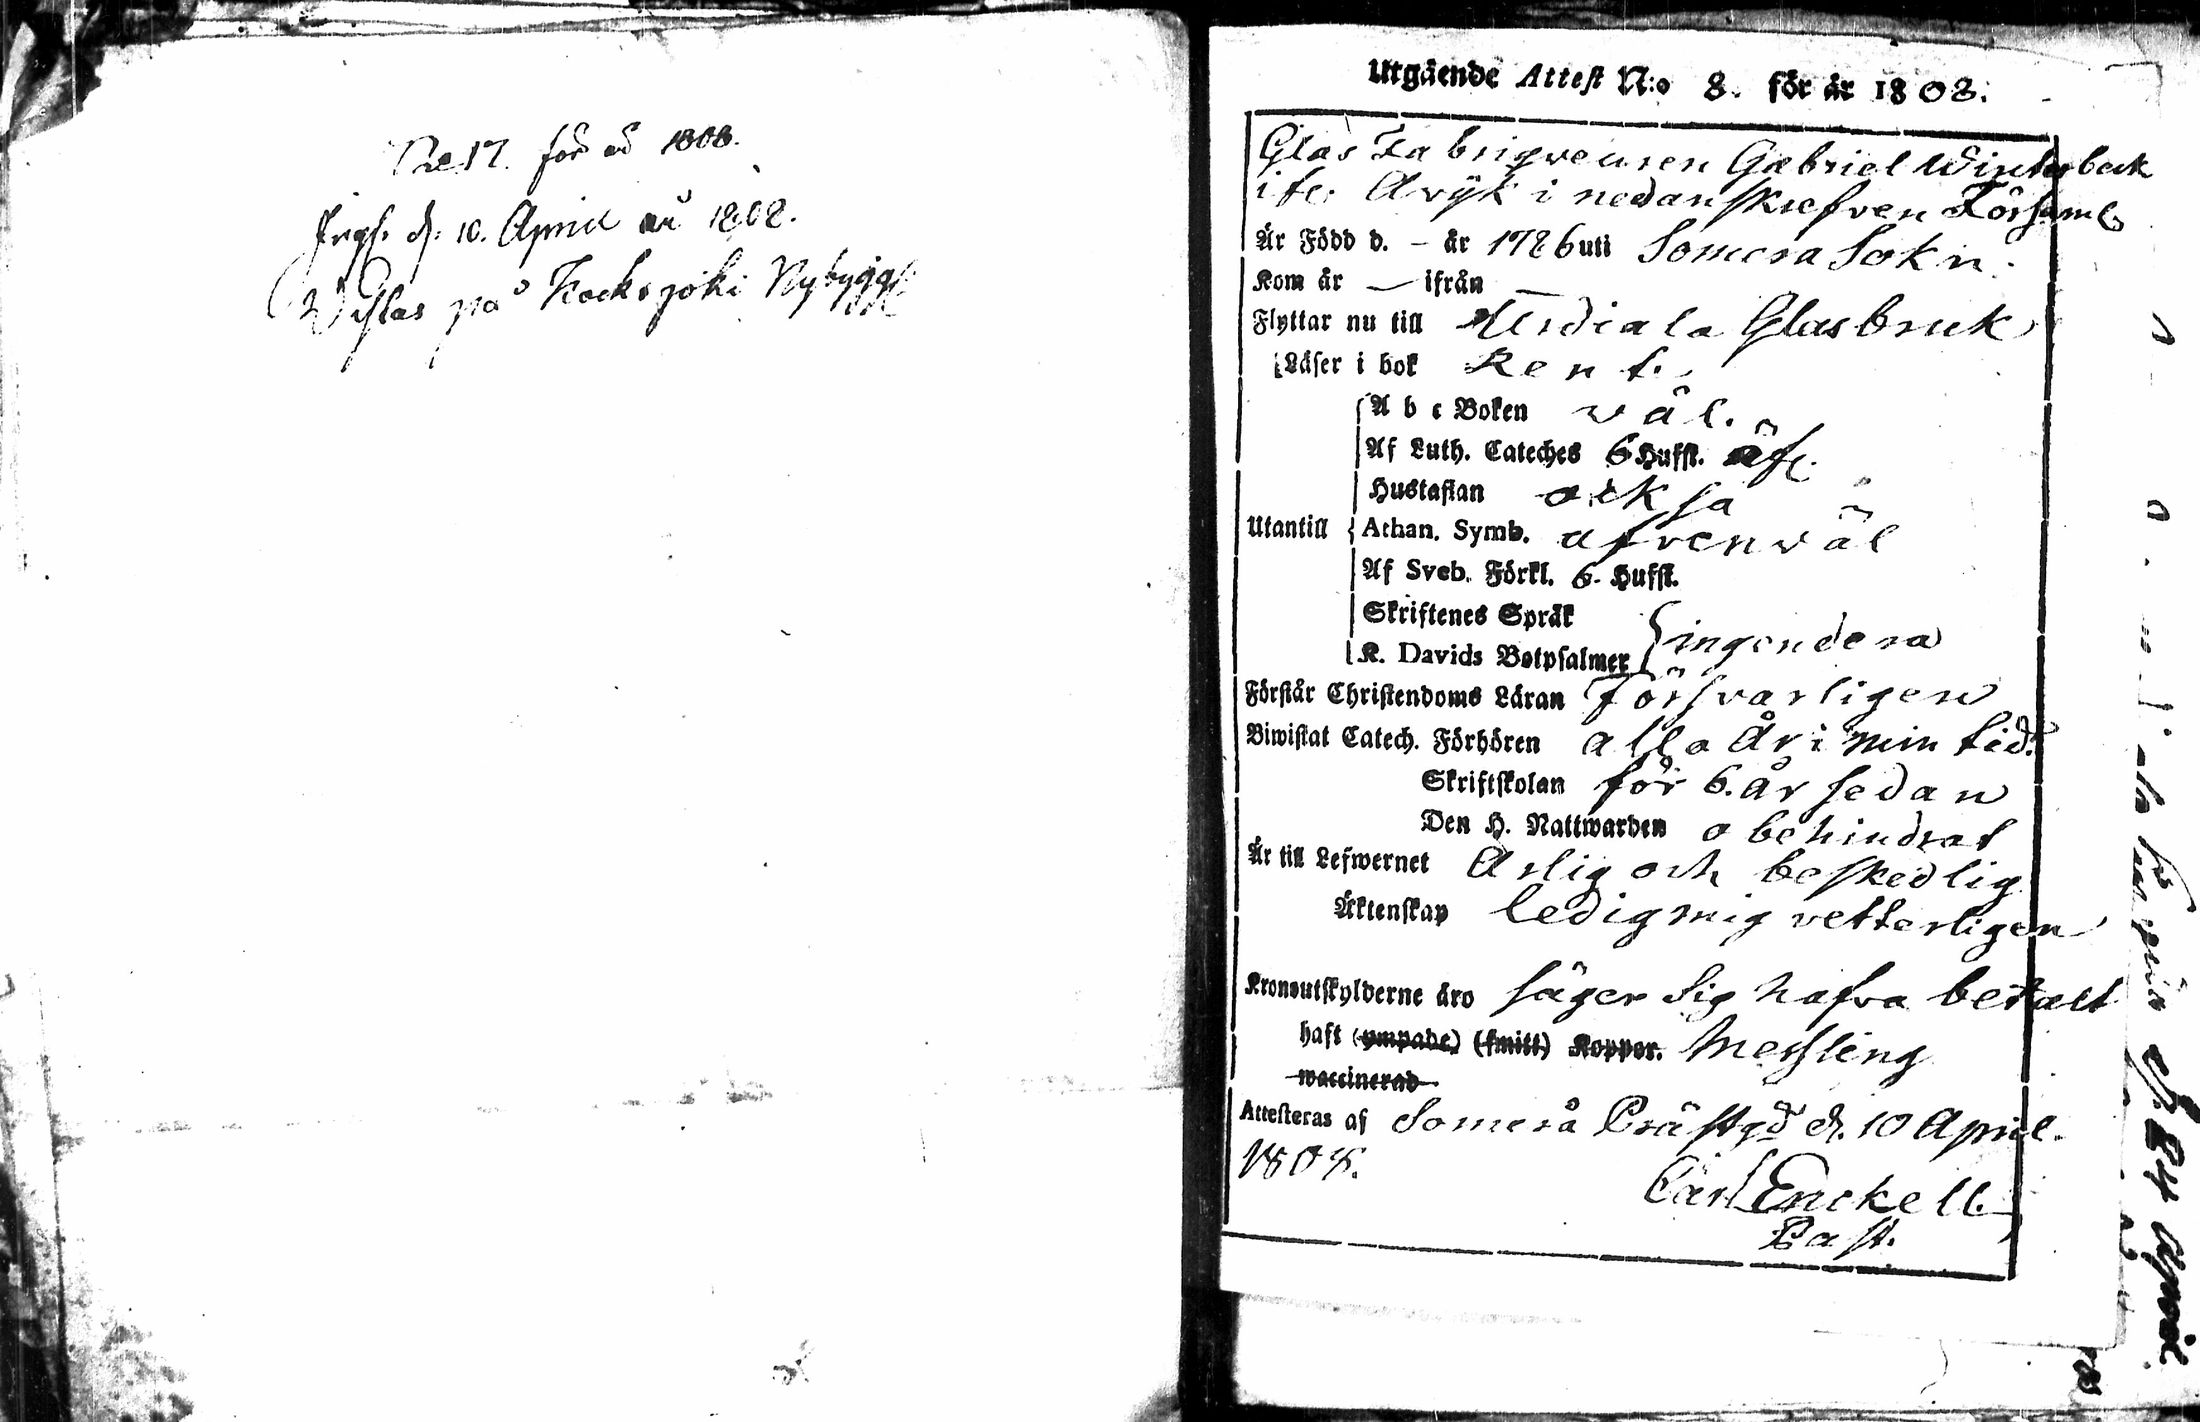 No 17. för år 1808.
d. 10. April år 1808.
Wistas på Kocksjoki Nybygge
Utgående Attest N:o 8. för år 1808.
Glas Fabriqveuren Gabriel Winterbeck
ifr. Åvik i nedanskrefven Församl.
Är Född d. – år 1786 uti Somero Sokn.
Kom år — ifrån —
Flyttar nu till Urdiala Glasbruk
Läser i bok Rent.
A b c Boken väl.
Af Luth. Cateches 6 Hufst. äfv.
Hustaflan ock så
Utantill Athan. Symb. äfven väl
Af Sveb. Förkl. 6. Hufst.
Skriftenes Språk
K. Davids Botpsalmer ingendera
Förstår Christendoms Läran Försvarligen
Biwistat Catech. Förhören alla År i min tid.
Skriftskolan för 6. år sedan
Den H. Nattwarden obehindrat
Är till Lefwernet Ärlig och beskedlig
Äktenskap ledig mig vetterligen
Kronoutskylderne äro säger Sig hafva betalt
haft (ympade) (smitt) Koppor. Messling
waccinerad
Attesteras af Somero Prästgd d. 10 April.
1808.
Carl Enckell.
Past.
d. 24 April